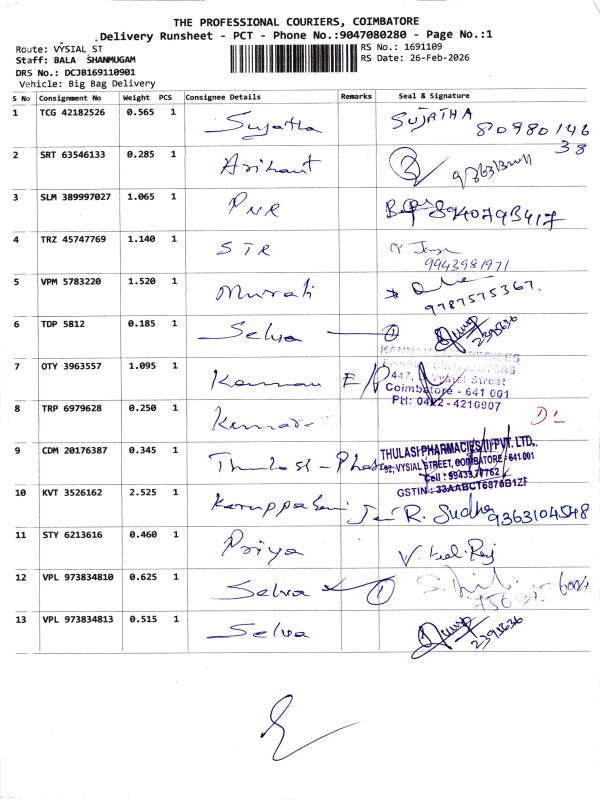 THE PROFESSIONAL COURIERS, COIMBATORE
Delivery Runsheet - PCT - Phone No.:9047080280 - Page No.:1
Route: VYSIAL ST
RS No.: 1691109
Staff: BALA SHANMUGAM
RS Date: 26-Feb-2026
DRS No.: DCJB169110901
Vehicle: Big Bag Delivery
S No Consignment No Weight PCS Consignee Details Remarks Seal & Signature
1 TCG 42182526 0.565 1 Sujatha SUJATHA 80980146
38
2 SRT 63546133 0.285 1 Arihant
3 SLM 389997027 1.065 1 PNR
4 TRZ 45747769 1.140 1 STR
9943981971
5 VPM 5783220 1.520 1 Murali
9787575367.
6 TDP 5812 0.185 1 Selva 1
7 OTY 3963557 1.095 1 Kannan E/P
447, Vysial Street
Coimbatore - 641 001
PH: 0422 - 4210907
8 TRP 6979628 0.250 1
9 CDM 20176387 0.345 1 Thulasi - Phar
THULASI PHARMACIES(I) PVT. LTD.
92, VYSIAL STREET, COIMBATORE - 641 001
GSTIN : 33AABCT6876B1ZF
10 KVT 3526162 2.525 1 Karuppa R. Sudha 9363104548
11 STY 6213616 0.460 1 Priya
12 VPL 973834810 0.625 1 Selva 1
13 VPL 973834813 0.515 1 Selva